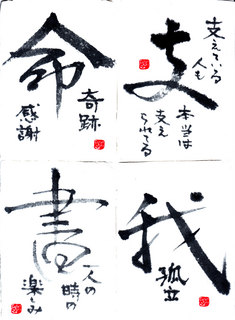 支
支えている
人も
本当は
支え
られてる
命
奇跡
感謝
我
孤立
書
一人の
時の
楽しみ